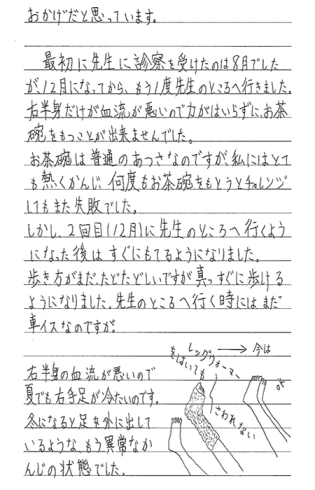 おかげだと思っています。
最初に先生に診察を受けたのは8月でした
が、12月になってから、もう1度先生のところへ行きました。
右半身だけが血流が悪いので力がはいらずに、お茶
碗をもつことが出来ませんでした。
お茶碗は普通のあつさなのですが、私にはとて
も熱くかんじ、何度もお茶碗をもとうとチャレンジ
してもまた失敗でした。
しかし、2回目(12月)に先生のところへ行くよう
になった後は すぐにもてるようになりました。
歩き方がまだ、たどたどしいですが真っすぐに歩ける
ようになりました。先生のところへ行く時にはまだ
車イスなのですが。
右半身の血流が悪いので
夏でも右手足が冷たいのです。
冬になると足を外に出して
いるような、もう異常なか
んじの状態でした。
レッグウォーマー
をはいても
さわれない
→ 今は
OK